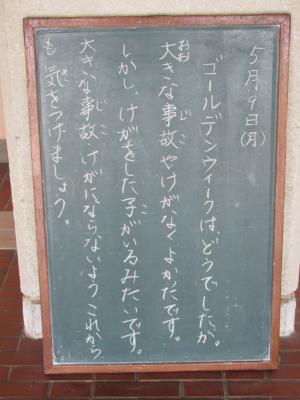 5月9日(月)
ゴールデンウィークは、どうでしたか。
大きな事故やけががなくよかったです。
しかし、けがをした子がいるみたいです。
大きな事故・けがにならないようこれから
も気をつけましょう。